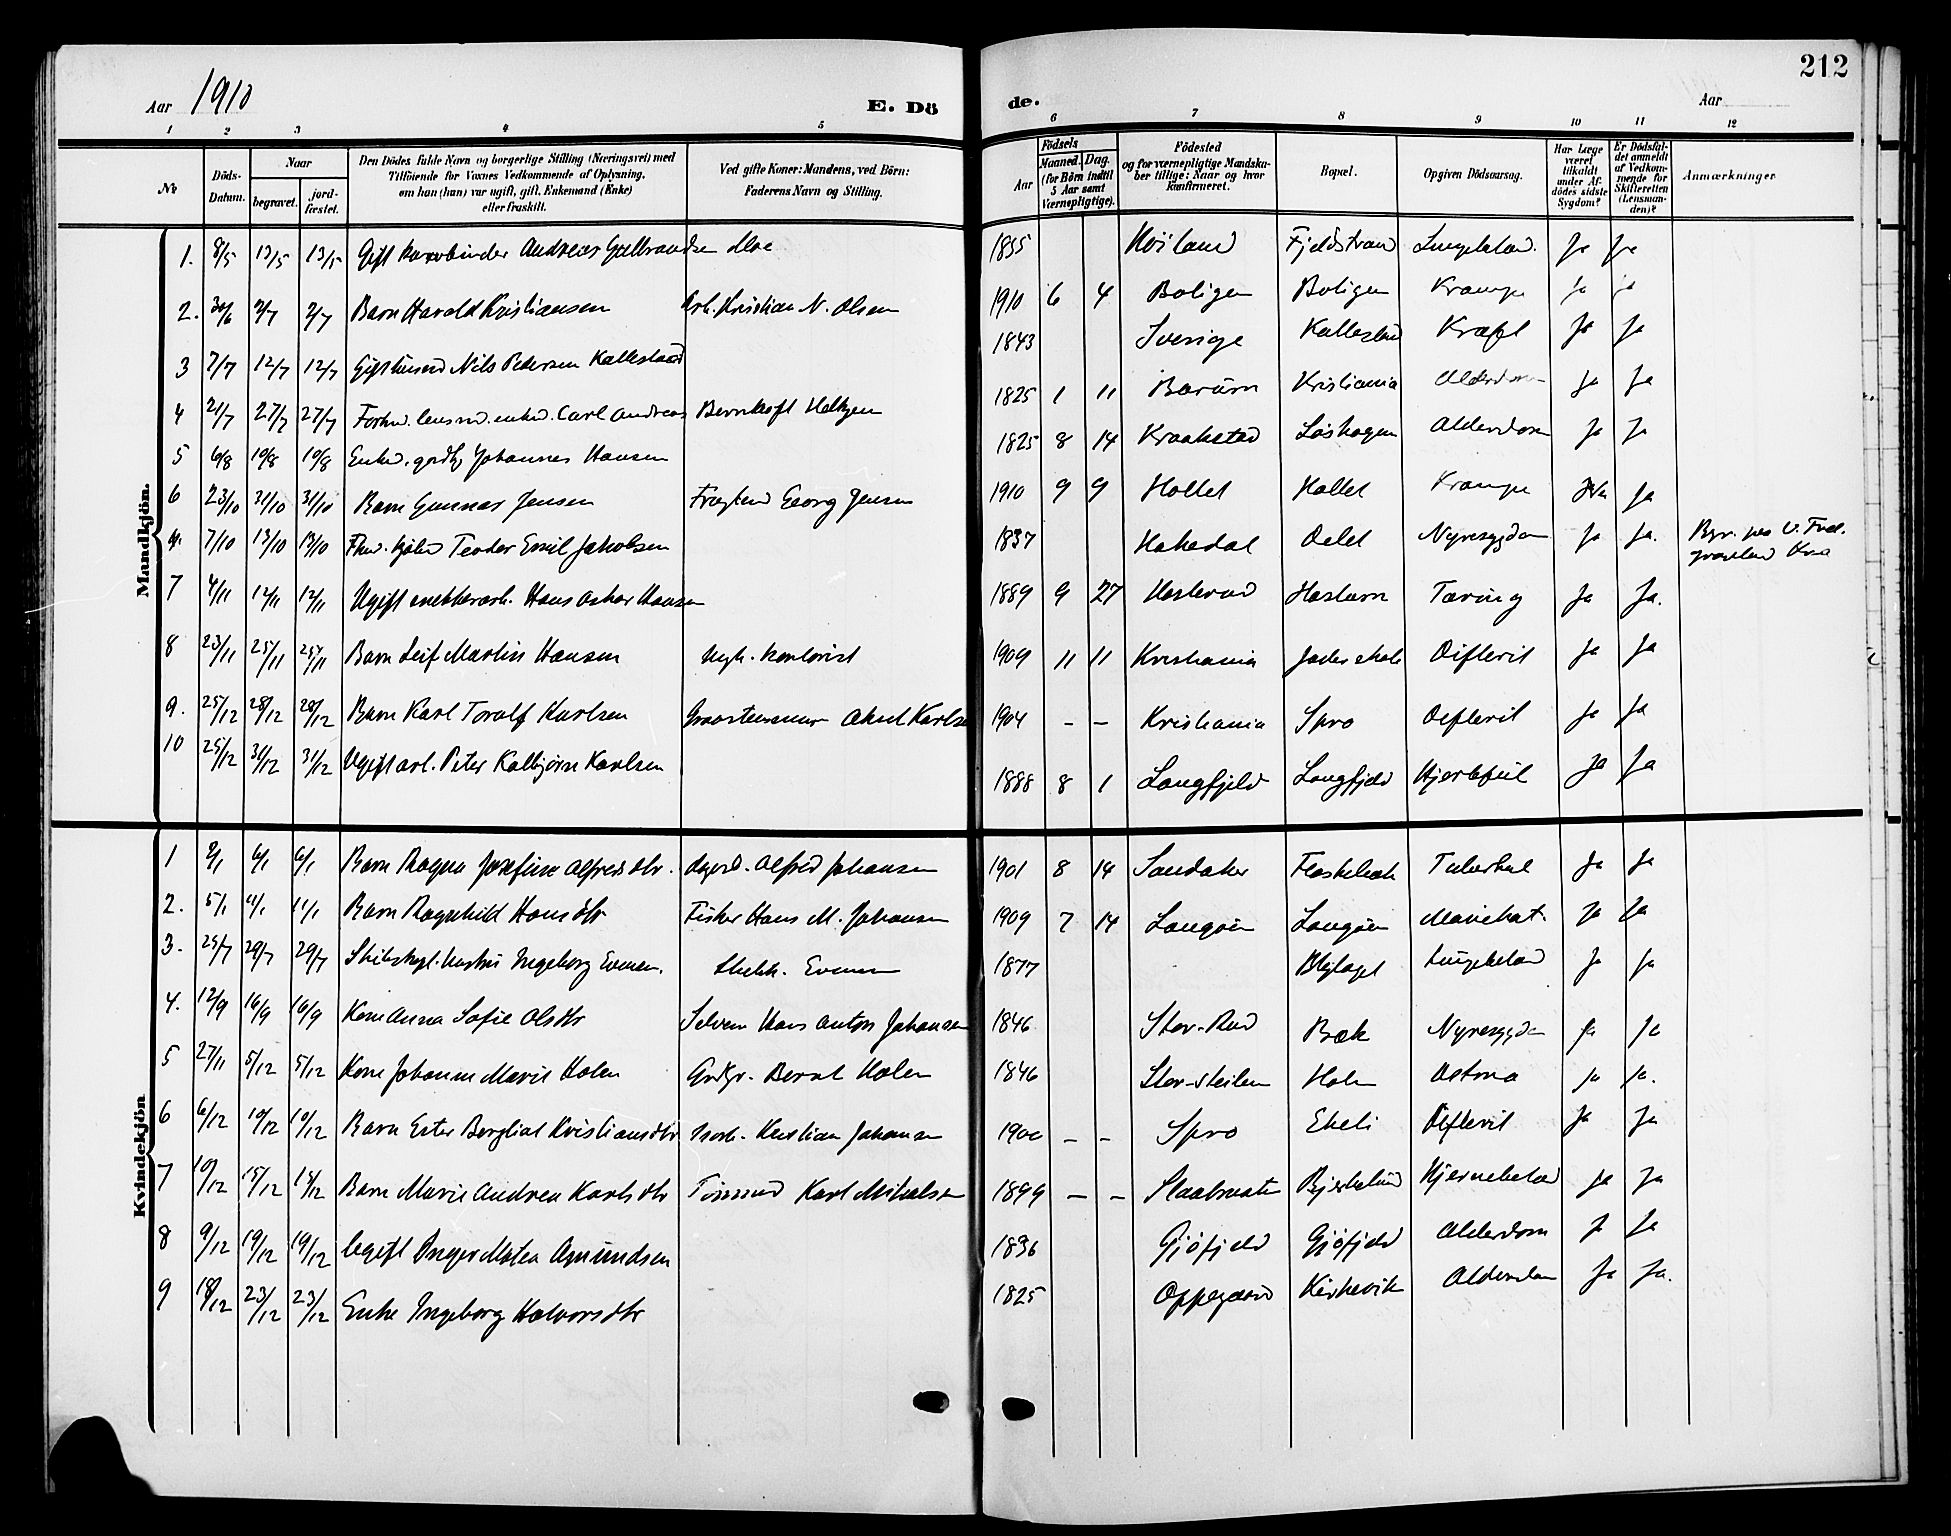 212
Aar 1910
E. Dö
de.
Aar
1 2 3 4 5 6 7 8 9 10 11 12
No
Döds-Datum.
Naar
begravet.
jord-fæstet.
Den Dödes fulde Navn og borgerlige Stilling (Næringsvei) med
Tilföiende for Voxnes Vedkommende af Oplysning,
om han (hun) var ugift, gift, Enkemand (Enke)
eller fraskilt.
Ved gifte Koner: Mandens, ved Börn:
Faderens Navn og Stilling.
Födsels
Aar
Maaned. Dag.
(for Börn indtil
5 Aar samt
Værnepligtige).
Födested
og for værnepligtige Mandska-
ber tillige: Naar og hvor
konfirmeret.
Bopæl.
Opgiven Dödsaarsag.
Har Læge
været
tilkaldt
under Af-
dödes sidste
Sygdom?
Er Dödsfal-
det anmeldt
af Vedkom-
mende for
Skifteretten
(Lensman-
den)?
Anmærkninger
Mandkjön.
1. 8/5 13/5 13/5 Gift Andreas Gulbrandsen Moe 1855 Höiland Fjeldstrand Ja Ja
2. 30/6 2/7 2/7 Barn Harald Kristiansen Arb. Kristian N. Olsen 1910 6 4 Boligen Boligen Krampe Ja Ja
3 7/7 12/7 12/7 Gift husmd Nils Pedersen Kallestad 1843 Sverige Kallestad Kræft Ja Ja
4 21/7 27/7 27/7 Forhv. lensmd. enkem. Carl Andreas Bernhoft Helgesen 1825 1 11 Bærum Kristiania Alderdom Ja Ja
5 6/8 10/8 10/8 Enkem. Johannes Hansen 1825 8 14 Kraakstad Alderdom Ja Ja
6 23/10 31/10 31/10 Barn Gunnar Jensen Georg Jensen 1910 9 9 Hallet Hallet Krampe Ja
7/10 13/10 13/10 Emil Jakobsen 1837 Hakedal Nyresygdom Ja Ja.
7 4/11 12/11 12/11 Ugift Hans Oskar Hansen 1889 9 27 Tæring Ja Ja.
8 23/11 25/11 25/11 Barn Leif Martin Hansen 1909 11 11 Kristiania Difterit Ja Ja
9. 25/12 28/12 28/12 Barn Karl Toralf Karlsen Aksel Karlsen 1904 - - Kristiania Spro Difterit Ja Ja
10 25/12 31/12 31/12 Ugift arb. Peter Kolbjørn Karlsen 1888 8 1 Langfjeld Langfjeld Hjertefeil Ja Ja
Kvindekjön
1 2/1 6/1 6/1 Barn Ragna Josefine Alfredsdtr. Alfred Johansen 1901 8 14 Sandaker Flaskebæk Ja Ja
2. 5/1 11/1 11/1 Barn Ragnhild Hansdtr Fisker Hans M. Johansen 1909 7 14 Langøen Langøen Ja Ja
3. 25/7 29/7 29/7 Ingeborg Evensen. Evensen 1877 Ja Ja
4. 12/9 16/9 16/9 Kone Anna Sofie Olsdtr Hans Anton Johansen 1846 Stor-Rud Bæk Nyresygdom Ja Ja
5 27/11 5/12 5/12 Kone Johanne Marie Holen Grdbr. Bernt Holen 1846 Stor-steilen Holen Astma Ja Ja.
6 6/12 10/12 10/12 Barn Ester Bergliot Kristiansdtr Kristian Johansen 1900 - - Spro Ekeli Difterit Ja Ja
7 10/12 15/12 15/12 Barn Marie Andrea Karlsdtr Tømmermd Karl Mikalsen 1899 - - Bjerkelund Ja Ja
8 9/12 19/12 19/12 Ugift Inger Matea Amundsen 1836 Gjøfjeld Gjøfjeld Alderdom Ja Ja
9 18/12 23/12 23/12 Enke Ingeborg Halvorsdtr 1825 Oppegaard Kirkevik Alderdom Ja Ja.